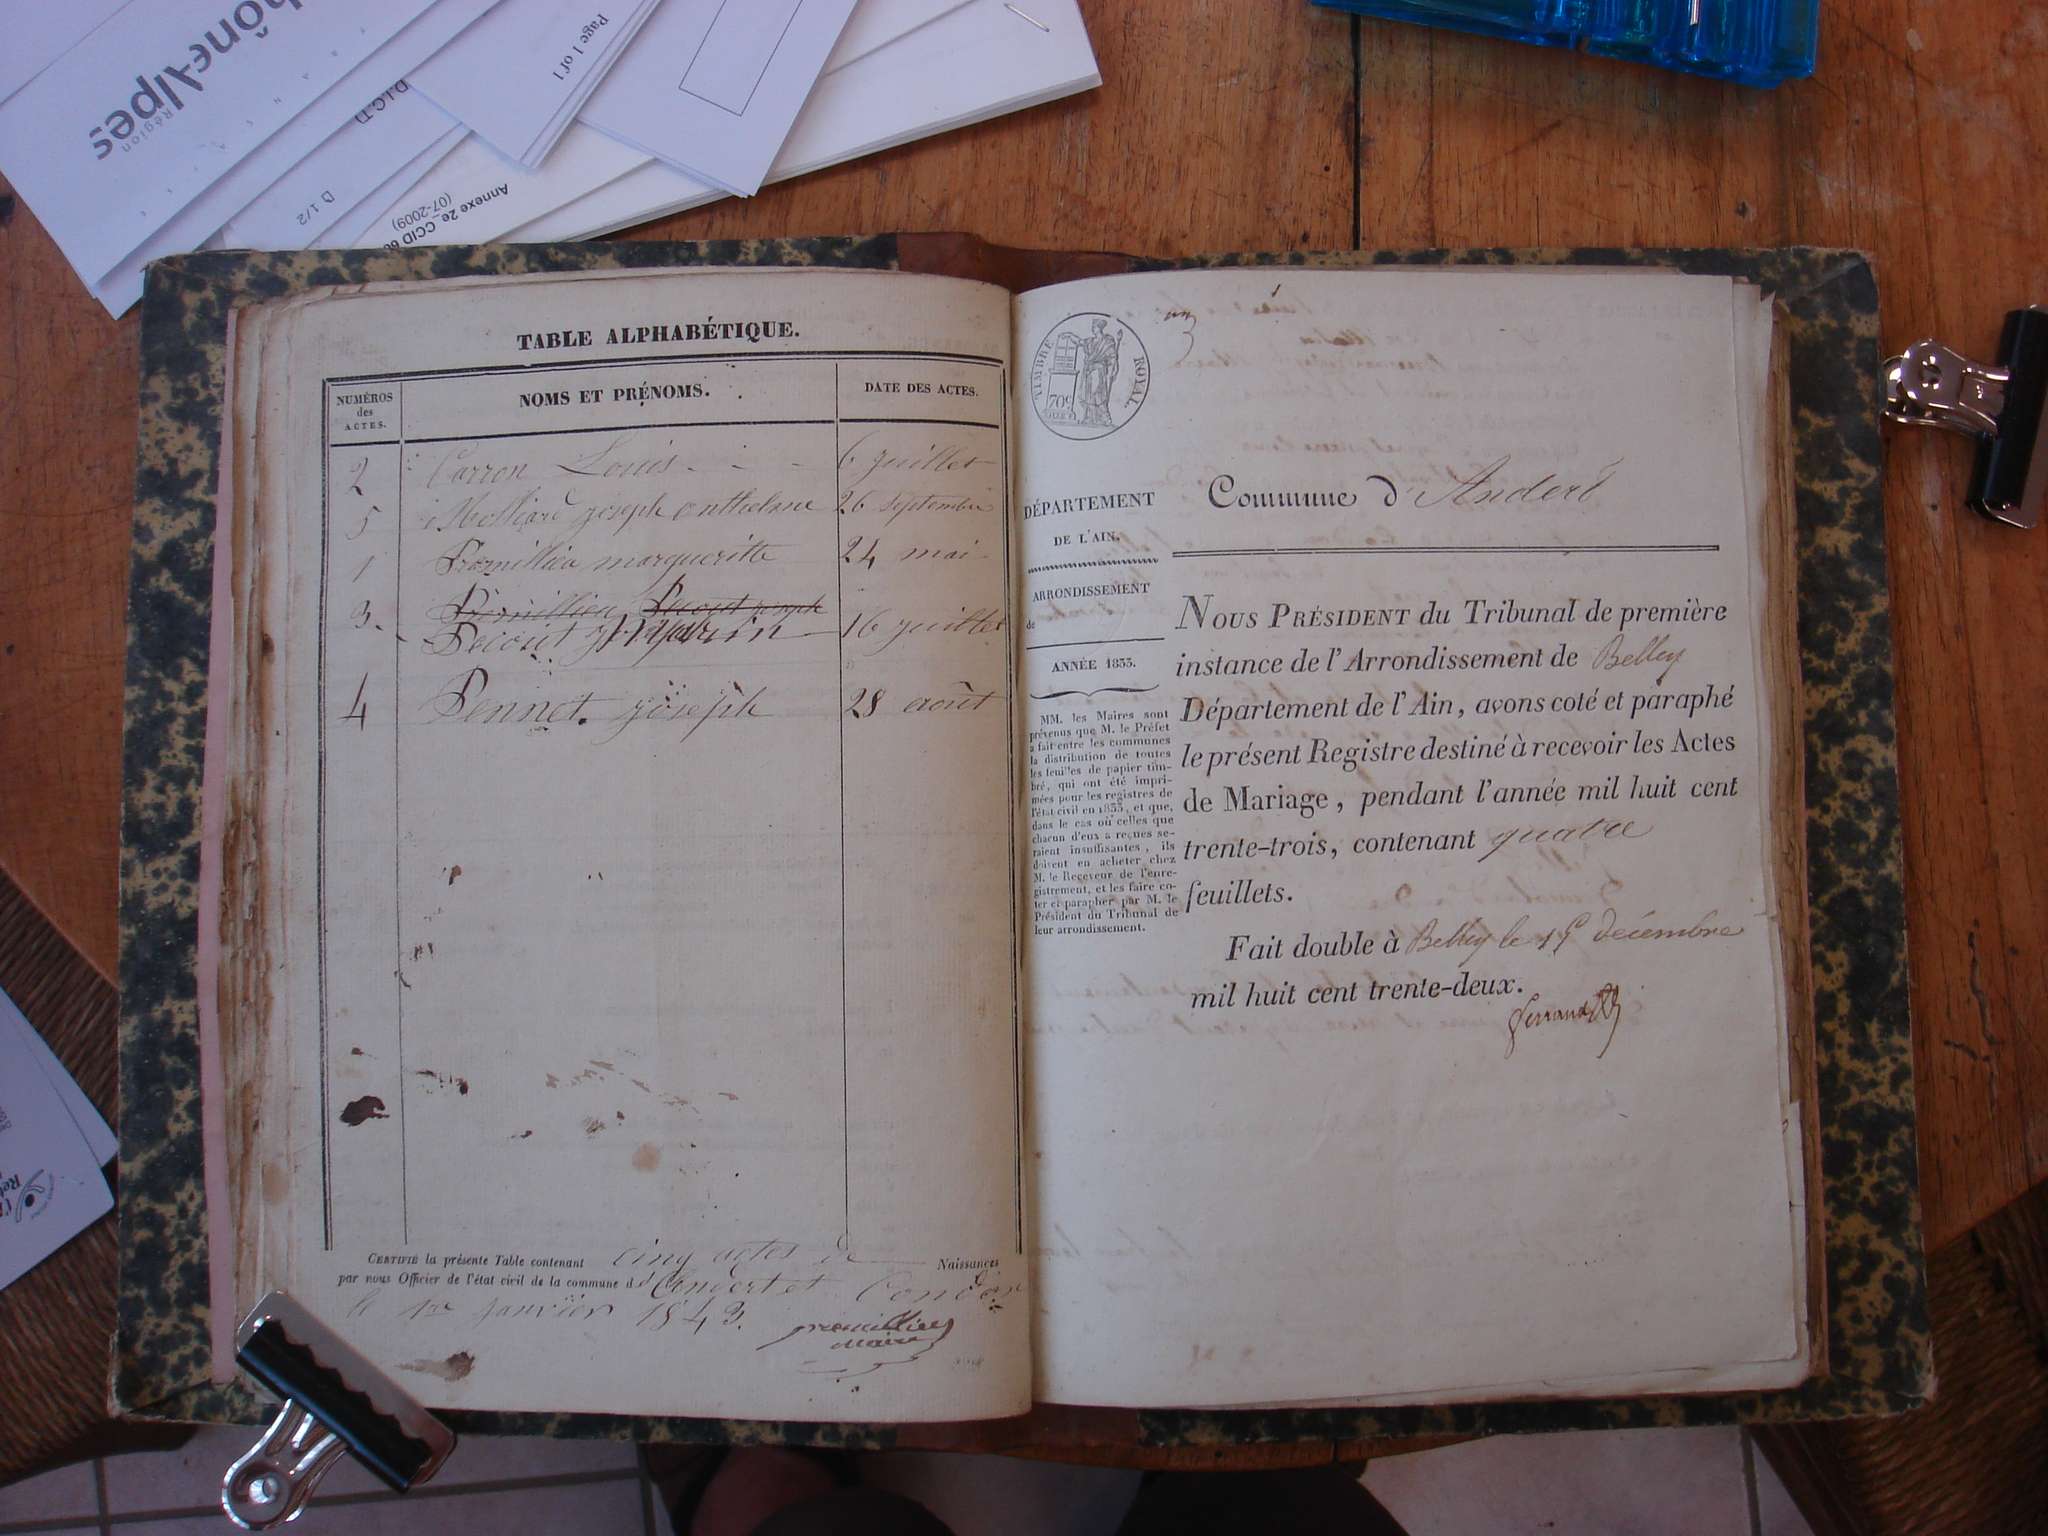 Rhône-Alpes
Région
Page 1 of 1
D.I.C.T
D 1/2
Annexe 2e_CCID 6
(07-2009)
TABLE ALPHABÉTIQUE.
NUMÉROS
des
ACTES.
NOMS ET PRÉNOMS.
DATE DES ACTES.
2 Carron Louis 6 juillet
5 Molliard joseph anthelme 26 septembre
1 Promillieu margueritte 24 mai
3. joseph
Pecout 16 juillet
4 Pennet. joseph 28 août
CERTIFIÉ la présente Table contenant cinq actes de Naissances
par nous Officier de l'état civil de la commune d'Andert et Condon
le 1er janvier 1843.
promillieu
maire
TIMBRE ROYAL.
70c
Commune d'Andert
DÉPARTEMENT
DE L'AIN.
ARRONDISSEMENT
de
ANNÉE 1833.
MM. les Maires sont
prévenus que M. le Préfet
a fait entre les communes
la distribution de toutes
les feuilles de papier tim-
bré, qui ont été impri-
mées pour les registres de
l'état civil en 1833, et que,
dans le cas où celles que
chacun d'eux a reçues se-
raient insuffisantes, ils
doivent en acheter chez
M. le Receveur de l'enre-
gistrement, et les faire co-
ter et parapher par M. le
Président du Tribunal de
leur arrondissement.
NOUS PRÉSIDENT du Tribunal de première
instance de l'Arrondissement de Belley
Département de l'Ain, avons coté et paraphé
le présent Registre destiné à recevoir les Actes
de Mariage, pendant l'année mil huit cent
trente-trois, contenant quatre
feuillets.
Fait double à Belley le 15 décembre
mil huit cent trente-deux.